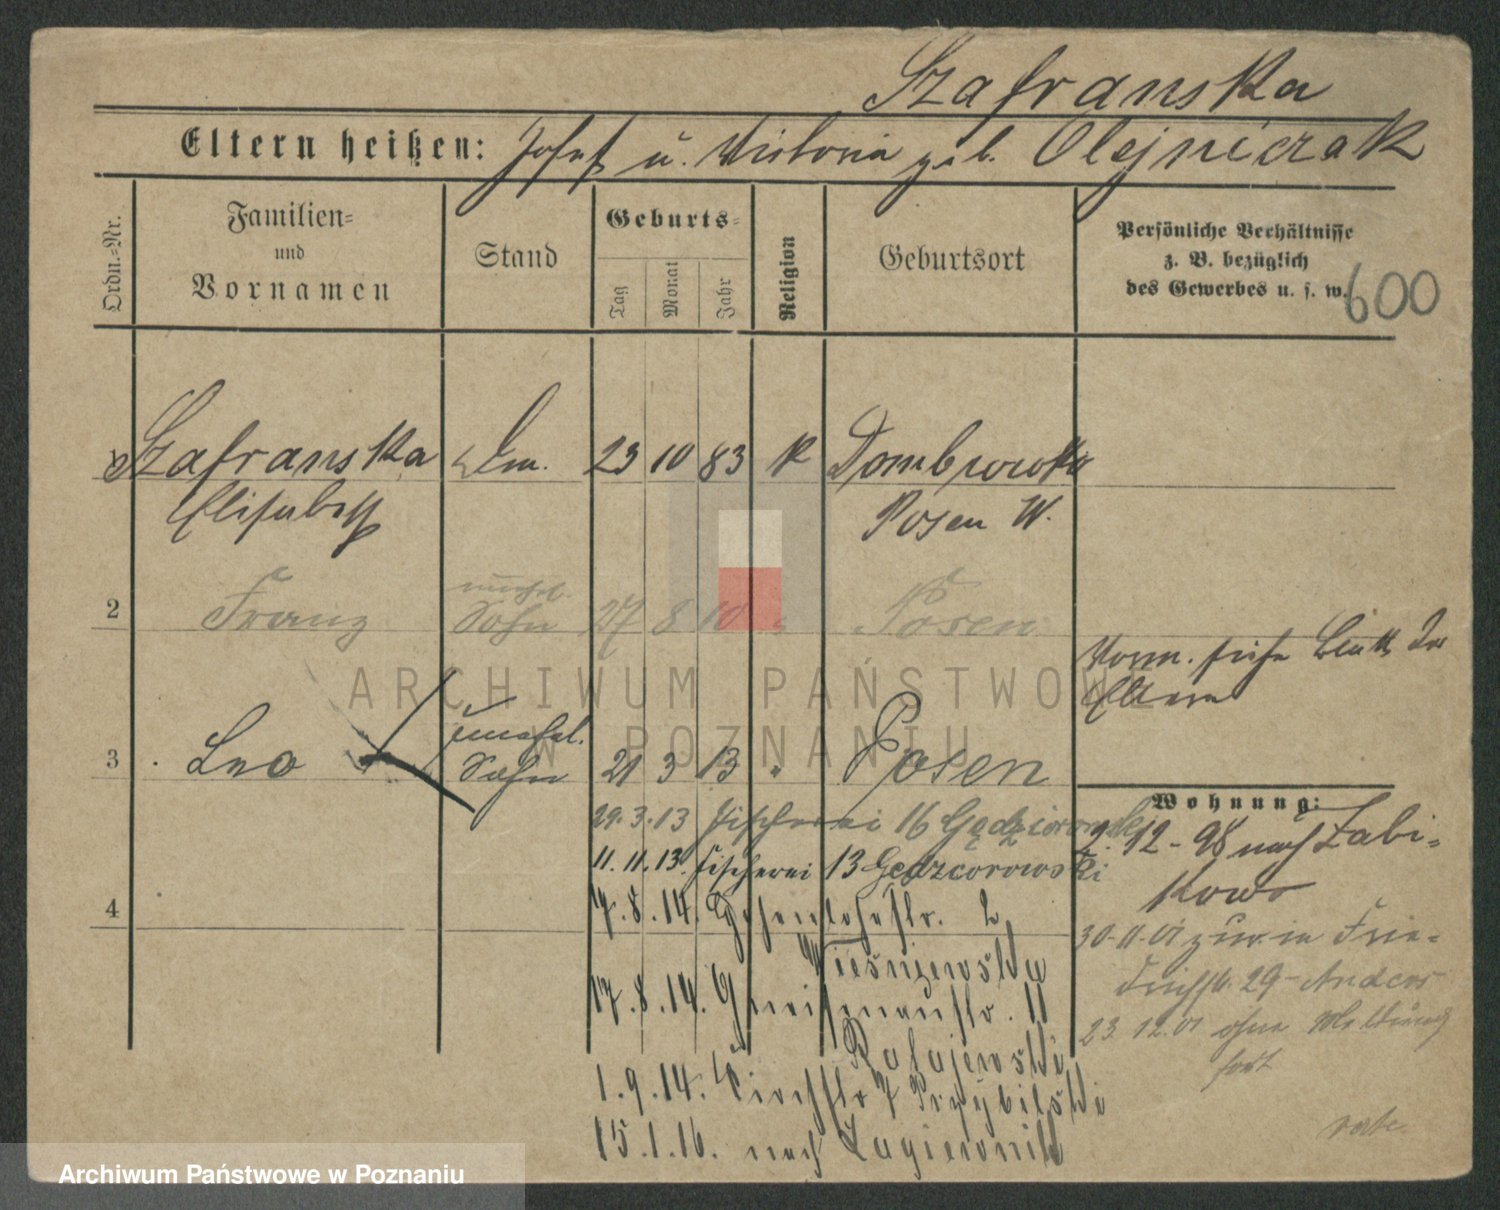 Szafranska
Eltern heißen: Josef u. Victoria geb. Olejniczak
Ordn.-Nr.
Familien-
und
Vornamen
Stand
Geburts-
Tag
Monat
Jahr
Religion
Geburtsort
Persönliche Verhältnisse
z. B. bezüglich
des Gewerbes u. s. w.
600
Szafranska 23 10 83 K Dombrowka
Elisabeth Posen W.
unehel.
2 Franz Sohn 27 8 10 " Posen
Vorm. siehe Blatt der
Eltern
unehel.
3 Leo Sohn 21 3 13 " Posen
Wohnung:
29.3.13 Fischerei 16 Gędziorowski
2.12-98 nach Zabi-
kowo
11.11.13. Fischerei 13 Gędzcorowski
4
7.8.14. Hohenlohestr. 2
Wieśniewska
30.11.01 zur. in Frie-
drichstr. 29-Anders
17.8.14. Gneisenaustr. 11
Ratajewski
23.12.01 ohne Meldung
fort
1.9.14. Kirchstr 7 Przybilski
15.1.16. nach Lagiewnik
ARCHIWUM PAŃSTWOWE
W POZNANIU
Archiwum Państwowe w Poznaniu